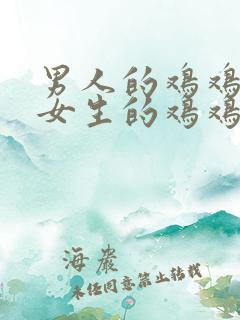 男人的鸡鸡
女生的鸡鸡
海岩
未经同意禁止转载